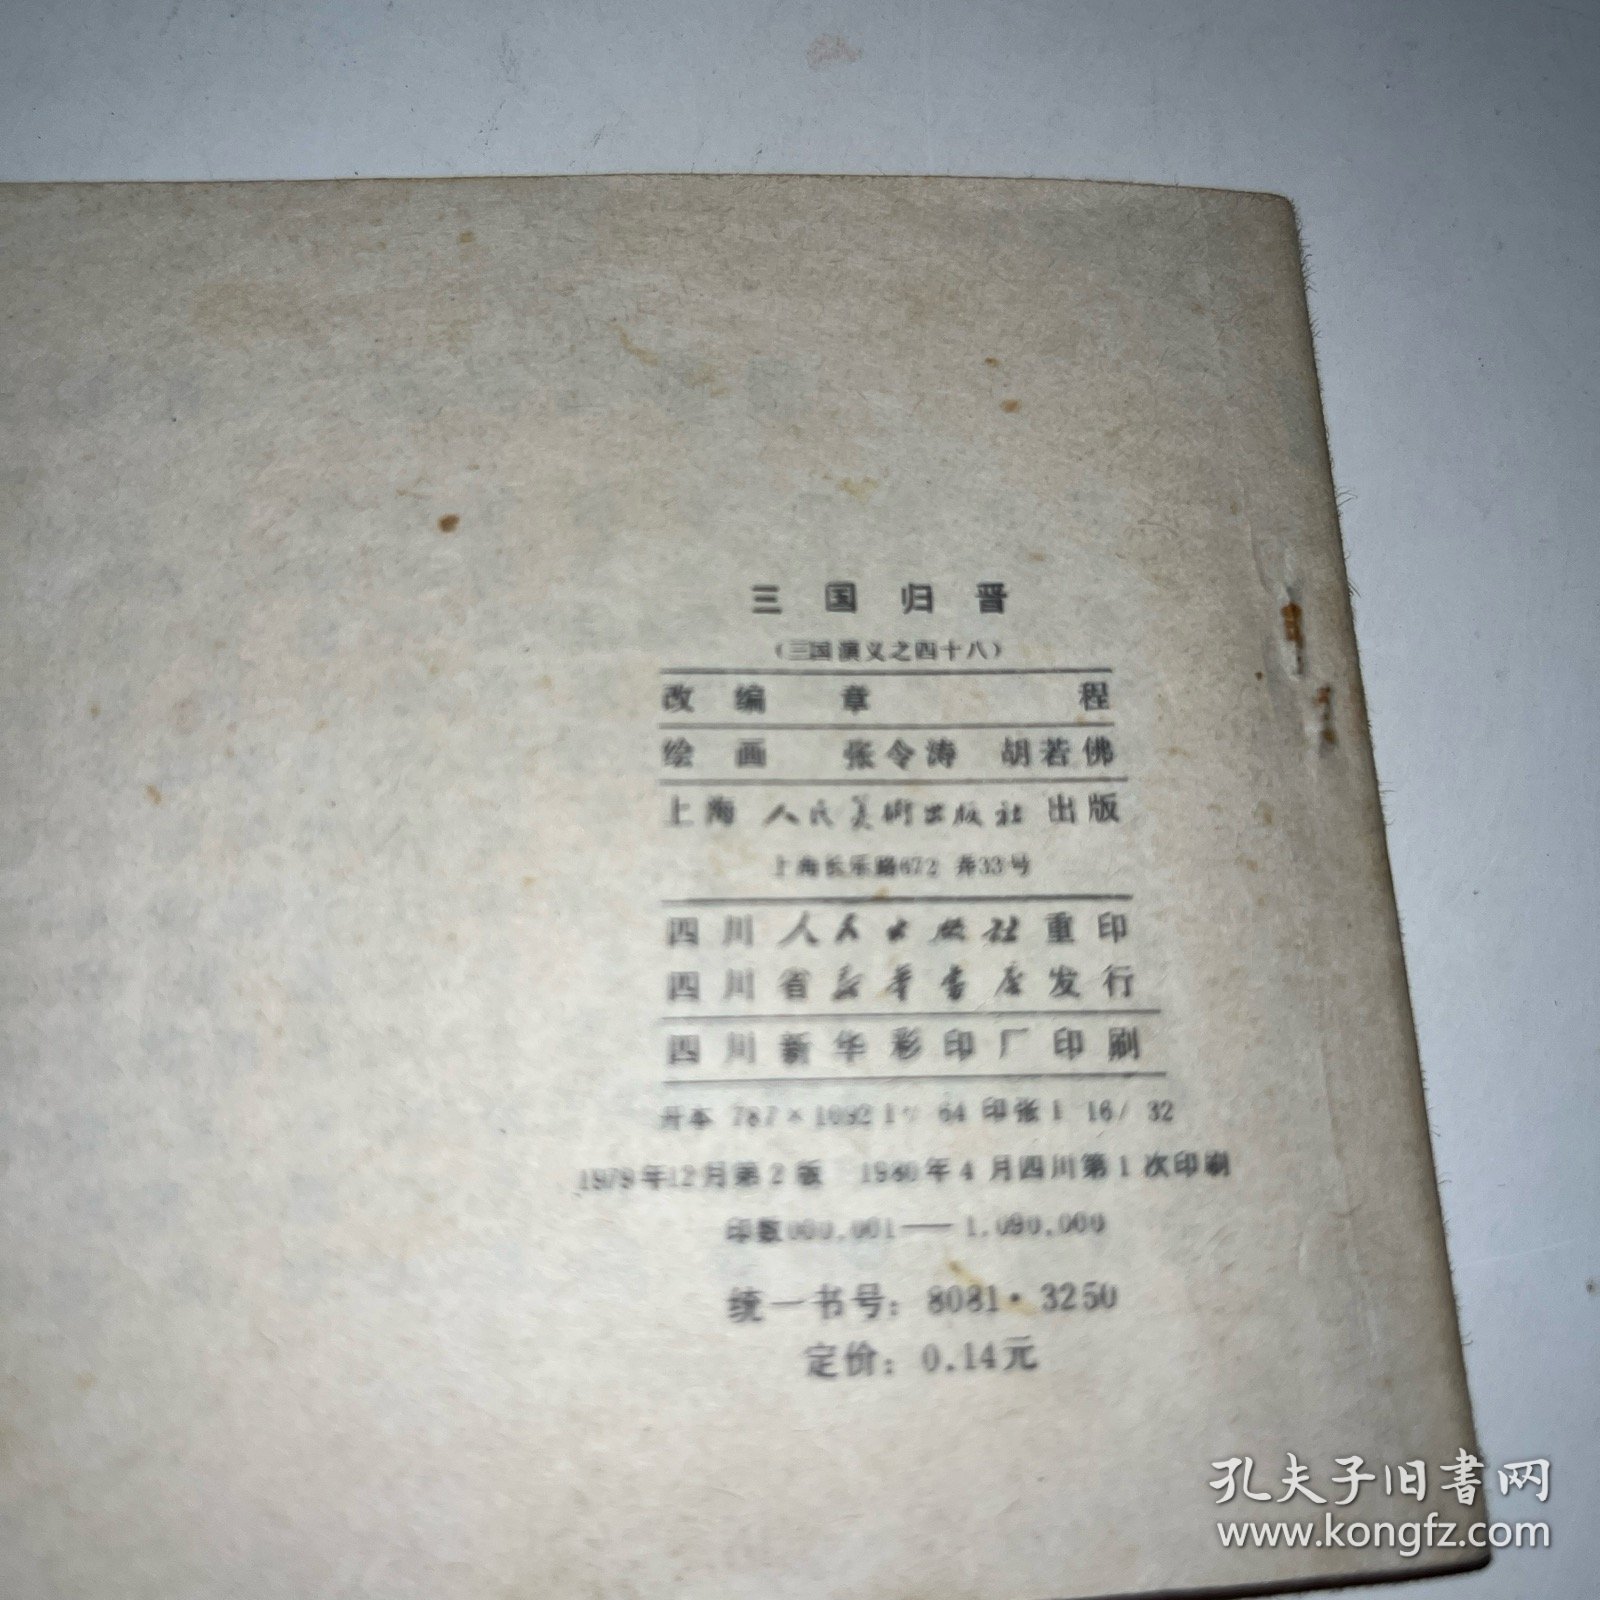 三国归晋
（三国演义之四十八）
改编 章程
绘画 张令涛 胡若佛
上海人民美術出版社出版
上海长乐路672弄33号
四川人民出版社重印
四川省新华书店发行
四川新华彩印厂印刷
开本 787×1092 1/64 印张1 16/32
1979年12月第2版 1980年4月四川第1次印刷
印数000,001——1,090,000
统一书号：8081·3250
定价：0.14元
孔夫子旧書网
www.kongfz.com